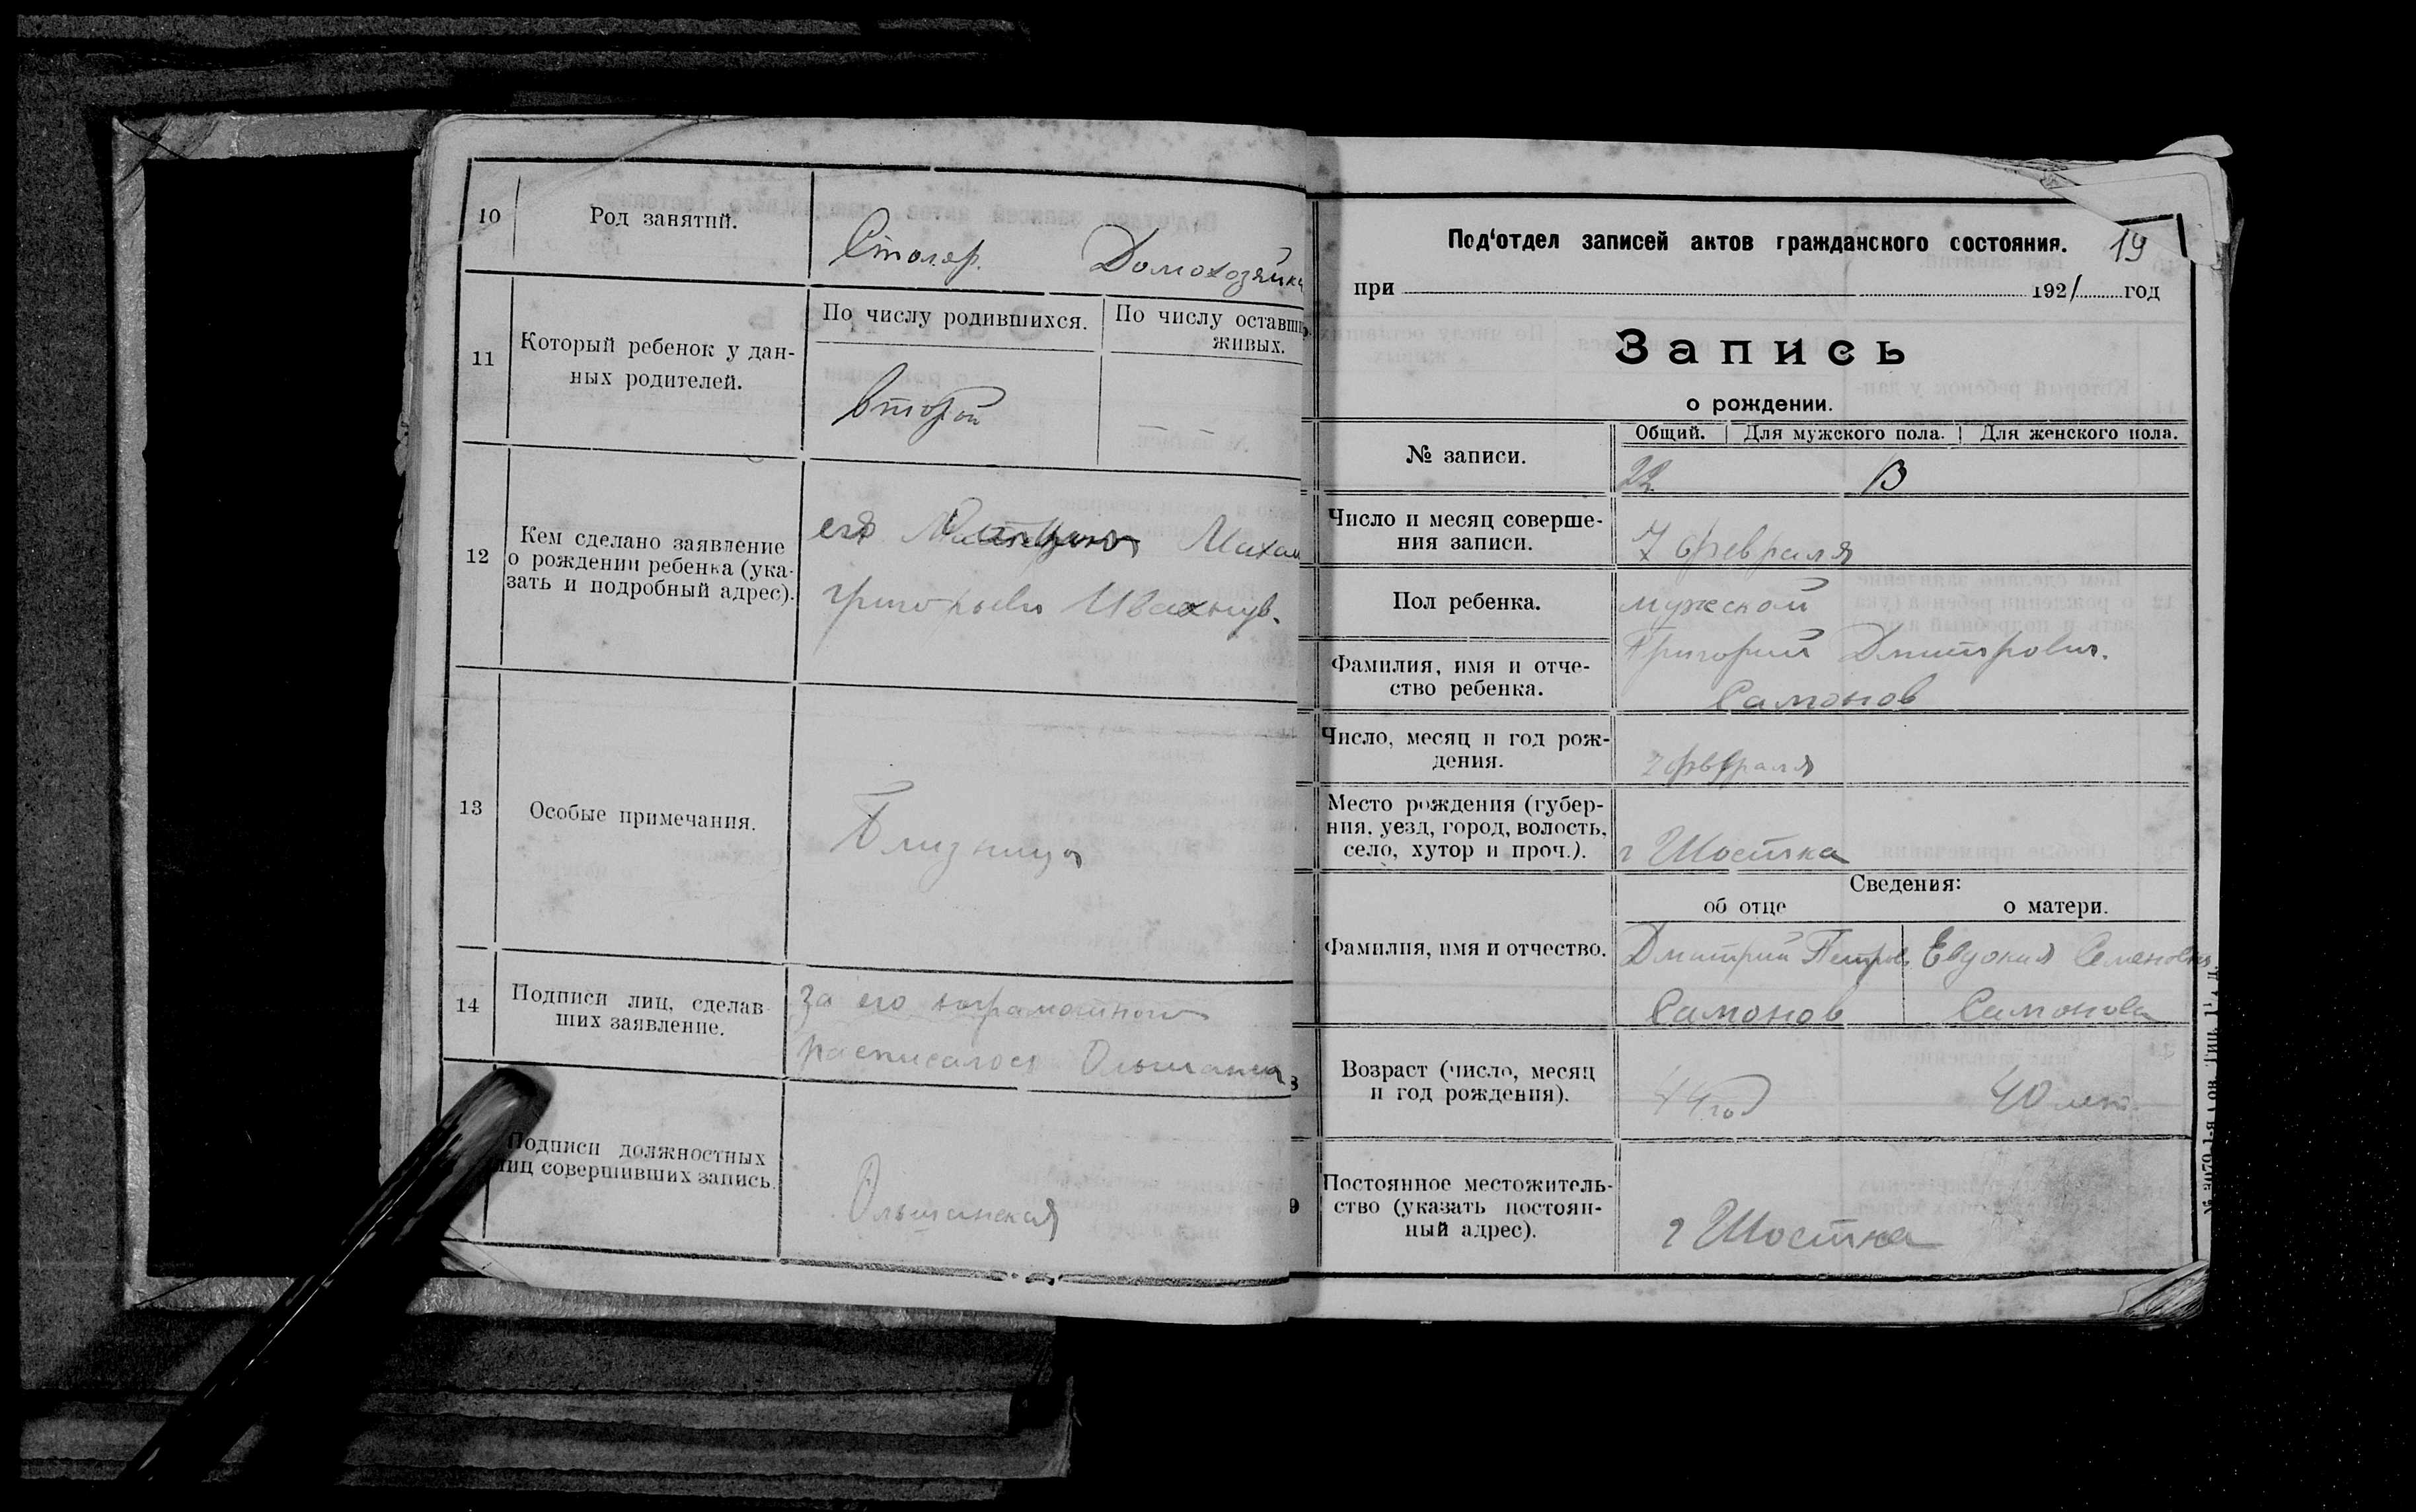 10
Род занятий.
Столяр.
Домохозяйка
11
Который ребенок у дан-
ных родителей.
По числу родившихся.
По числу оставши
живых.
второй
12
Кем сделано заявление
о рождении ребенка (ука-
зать и подробный адрес).
его
григорьев
13
Особые примечания.
Близнецы
14
Подписи лиц, сделав-
ших заявление.
За его
расписалося
Подписи должностных
лиц совершивших запись.
Ольшанская
Под‘отдел записей актов гражданского состояния.
19
при 1921 год
Запись
о рождении.
№ записи.
Общий.
Для мужского пола.
Для женского пола.
22
13
Число и месяц соверше-
ния записи.
7 февраля
Пол ребенка.
мужской
Фамилия, имя и отче-
ство ребенка.
Григорий Дмитрович.
Самонов
Число, месяц и год рож-
дения.
февраля
Место рождения (губер-
ния, уезд, город, волость,
село, хутор и проч.).
г Шостка
Сведения:
об отце
о матери.
Фамилия, имя и отчество.
Дмитрий Петров.
Самонов
Евдокия Семеновна
Самонова
8
Возраст (число, месяц
и год рождения).
44 год
40 лет.
9
Постоянное местожитель-
ство (указать постоян-
ный адрес).
г Шостка